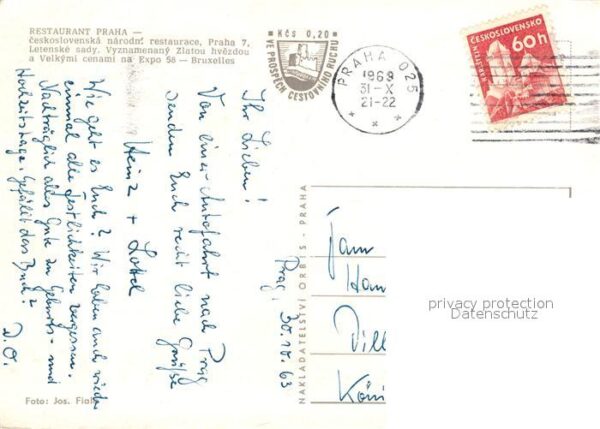 RESTAURANT PRAHA —
československá národní restaurace, Praha 7,
Letenské sady. Vyznamenaný Zlatou hvězdou
a Velkými cenami na Expo 58 — Bruxelles
Kčs 0,20
VE PROSPĚCH CESTOVNÍHO RUCHU
PRAHA 025
1963
31-X
21-22
ČESKOSLOVENSKO
60h
KARLŠTEJN
Prag, 30.10.63
Ihr Lieben!
Von einer Autofahrt nach Prag
senden Euch recht liebe Grüße
Heinz + Lottel
Wie geht es Euch? Wir haben auch wieder
einmal alle Festlichkeiten vergessen.
Nachträglich alles Gute zu Geburts- und
Hochzeitstage. Gefällt das Buch?
D.O.
NAKLADATELSTVÍ ORBIS - PRAHA
Fam
Köni
privacy protection
Datenschutz
Foto: Jos. Fiala